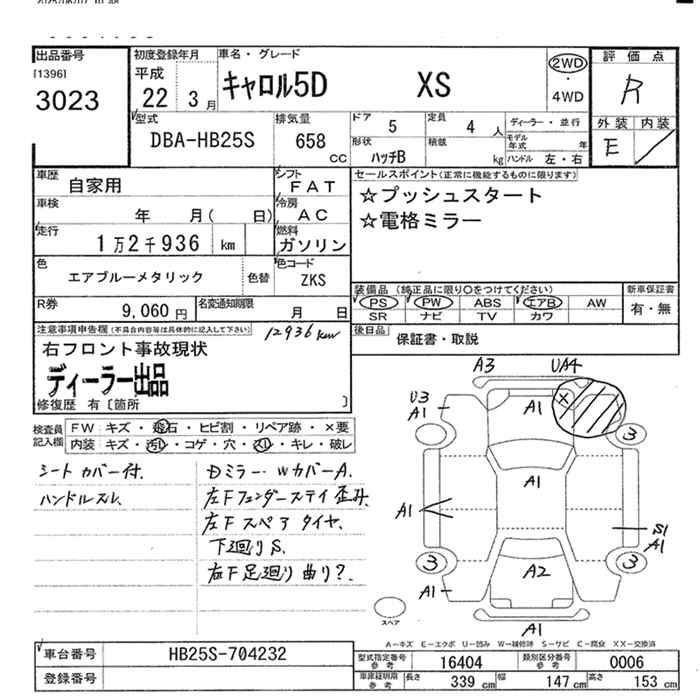 出品番号
[1396]
3023
初度登録年月
平成
22 3月
車名・グレード
キャロル5D XS
2WD
・
4WD
評価点
R
外装 内装
E
型式
DBA-HB25S
排気量
658
cc
ドア
5
定員
4 人
形状
ハッチB
積載
kg
ディーラー・並行
モデル
年式 年
ハンドル 左・右
車歴
自家用
車検
年 月( 日)
走行
1万2千936 km
シフト
FAT
冷房
AC
燃料
ガソリン
色
エアブルーメタリック
色替
色コード
ZKS
R券
9,060 円
名変通知期限
月 日
セールスポイント(正常に機能するものに限ります)
☆プッシュスタート
☆電格ミラー
装備品 (純正品に限り○をつけてください)
PS PW ABS エアB AW
SR ナビ TV カワ
新車保証書
有・無
後日品
保証書・取説
注意事項申告欄(不具合内容等は具体的に記入して下さい)
12936km
右フロント事故現状
ディーラー出品
修復歴 有〔箇所 〕
検査員
記入欄
FW キズ・飛石・ヒビ割・リペア跡・×要
内装 キズ・汚レ・コゲ・穴・スレ・キレ・破レ
シートカバー付.
ハンドルスレ.
Dミラー・WカバーA.
左Fフェンダーステイ歪み
左Fスペアタイヤ.
下廻りS.
右F足廻り曲り?.
A3 UA4
U3
A1
A1
X
3
3
A1
A1
S1
A1
3
3
A2
A1
A1
スペア
A-キズ E-エクボ U-凹み W-補修跡 S-サビ C-腐食 XX-交換済
車台番号
HB25S-704232
登録番号
型式指定番号
参考
16404
類別区分番号
参考
0006
車庫証明用
参考
長さ 339 cm 幅 147 cm 高さ 153 cm